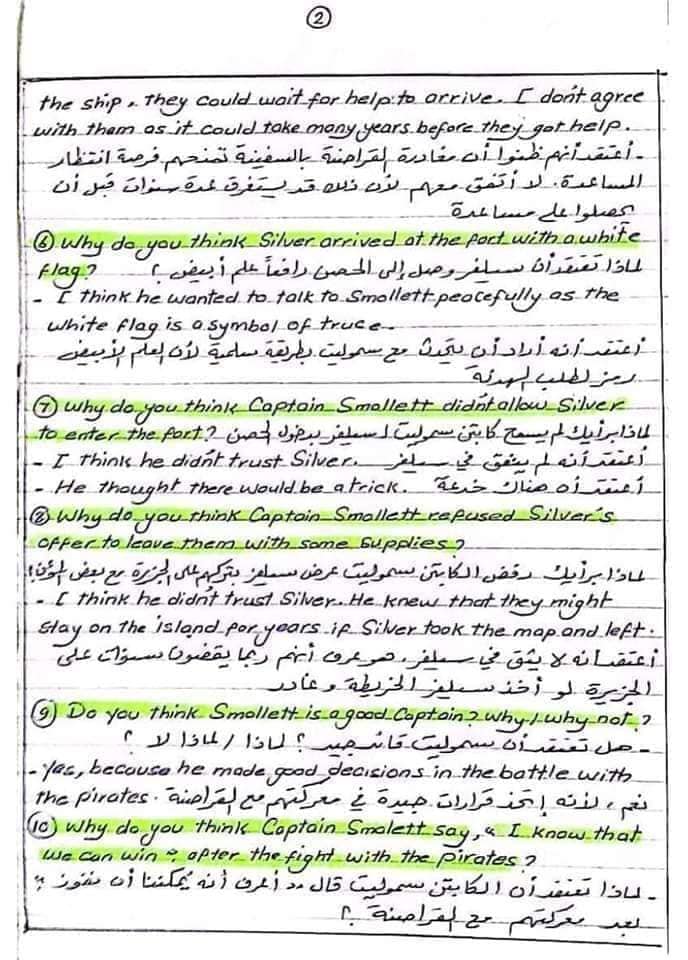 ②
the ship, they could wait for help to arrive. I don't agree
with them as it could take many years before they got help.
- أعتقد أنهم ظنوا أن مغادرة القراصنة بالسفينة تمنحهم فرصة انتظار
المساعدة. لا أتفق معهم لأن ذلك قد يستغرق عدة سنوات قبل أن
يحصلوا على مساعدة
⑥ Why do you think Silver arrived at the fort with a white
flag? لماذا تعتقد أن سيلفر وصل إلى الحصن رافعاً علم أبيض ؟
- I think he wanted to talk to Smollett peacefully as the
white flag is a symbol of truce.
أعتقد أنه أراد أن يتحدث مع سموليت بطريقة سلمية لأن العلم الأبيض
رمز لطلب الهدنة
⑦ Why do you think Captain Smollett didn't allow Silver
to enter the fort? لماذا برأيك لم يسمح كابتن سموليت لسيلفر بدخول الحصن
- I think he didn't trust Silver. أعتقد أنه لم يثق في سيلفر
- He thought there would be a trick. أعتقد أن هناك خدعة
⑧ Why do you think Captain Smollett refused Silver's
offer to leave them with some supplies?
لماذا برأيك رفض الكابتن سموليت عرض سيلفر بتركهم على الجزيرة مع بعض المؤن؟
- I think he didn't trust Silver. He knew that they might
stay on the island for years if Silver took the map and left.
أعتقد أنه لا يثق في سيلفر، هو عرف أنهم ربما يقضون سنوات على
الجزيرة لو أخذ سيلفر الخريطة وغادر
⑨ Do you think Smollett is a good Captain? Why / why not?
- هل تعتقد أن سموليت قائد جيد ؟ لماذا / لماذا لا ؟
- Yes, because he made good decisions in the battle with
the pirates. نعم، لأنه إتخذ قرارات جيدة في معركتهم مع القراصنة
⑩ Why do you think Captain Smolett say, " I know that
we can win " after the fight with the pirates?
- لماذا تعتقد أن الكابتن سموليت قال " أعرف أنه يمكننا أن نفوز "
بعد معركتهم مع القراصنة ؟